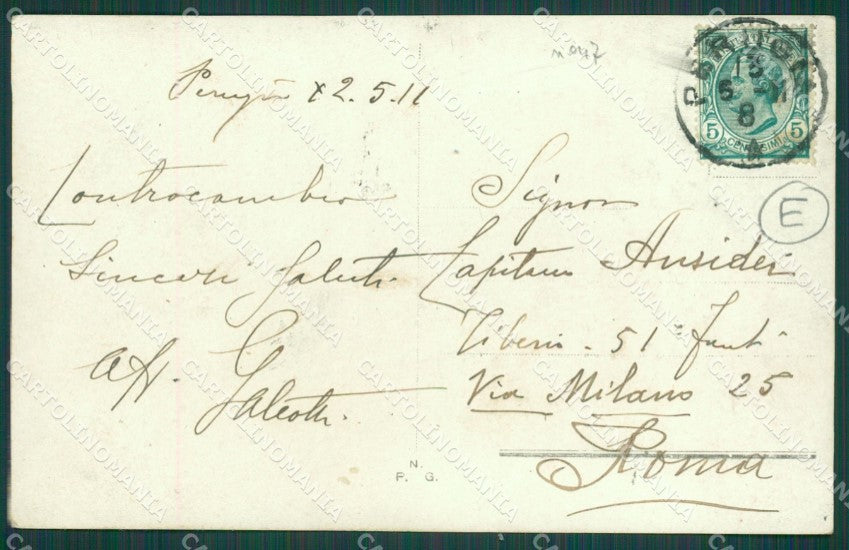 Perugia 2.5.11
Contracambio
Sinceri Saluti
aff. Galeotti
Signor
Capitano Ansidei
Tiberio - 51° Fant.
Via Milano 25
Roma
N.
P. G.
E
PERUGIA
5 CENTESIMI 5
CARTOLINOMANIA